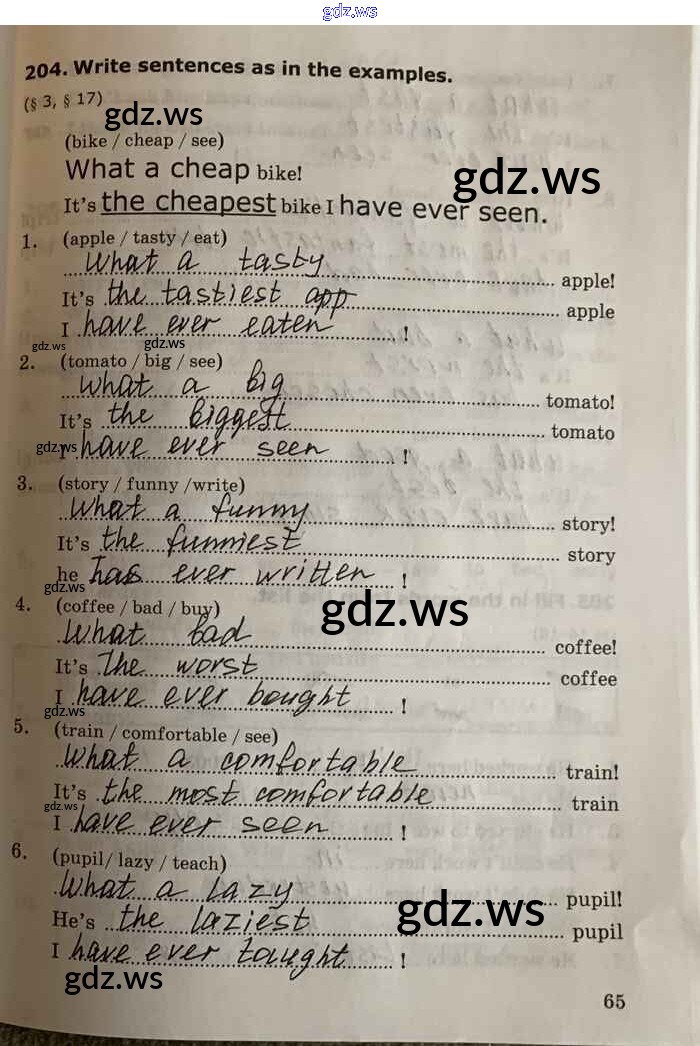 gdz.ws
204. Write sentences as in the examples.
(§ 3, § 17)
gdz.ws
(bike / cheap / see)
What a cheap bike!
gdz.ws
It's the cheapest bike I have ever seen.
1. (apple / tasty / eat)
What a tasty apple!
It's the tastiest app apple
I have ever eaten !
gdz.ws gdz.ws
2. (tomato / big / see)
What a big tomato!
It's the biggest tomato
gdz.ws
I have ever seen !
3. (story / funny /write)
What a funny story!
It's the funniest story
he has ever written !
gdz.ws
gdz.ws
4. (coffee / bad / buy)
What bad coffee!
It's the worst coffee
I have ever bought !
gdz.ws
5. (train / comfortable / see)
What a comfortable train!
It's the most comfortable train
gdz.ws
I have ever seen !
6. (pupil/ lazy / teach)
What a lazy pupil!
gdz.ws
He's the laziest pupil
I have ever taught !
gdz.ws
65